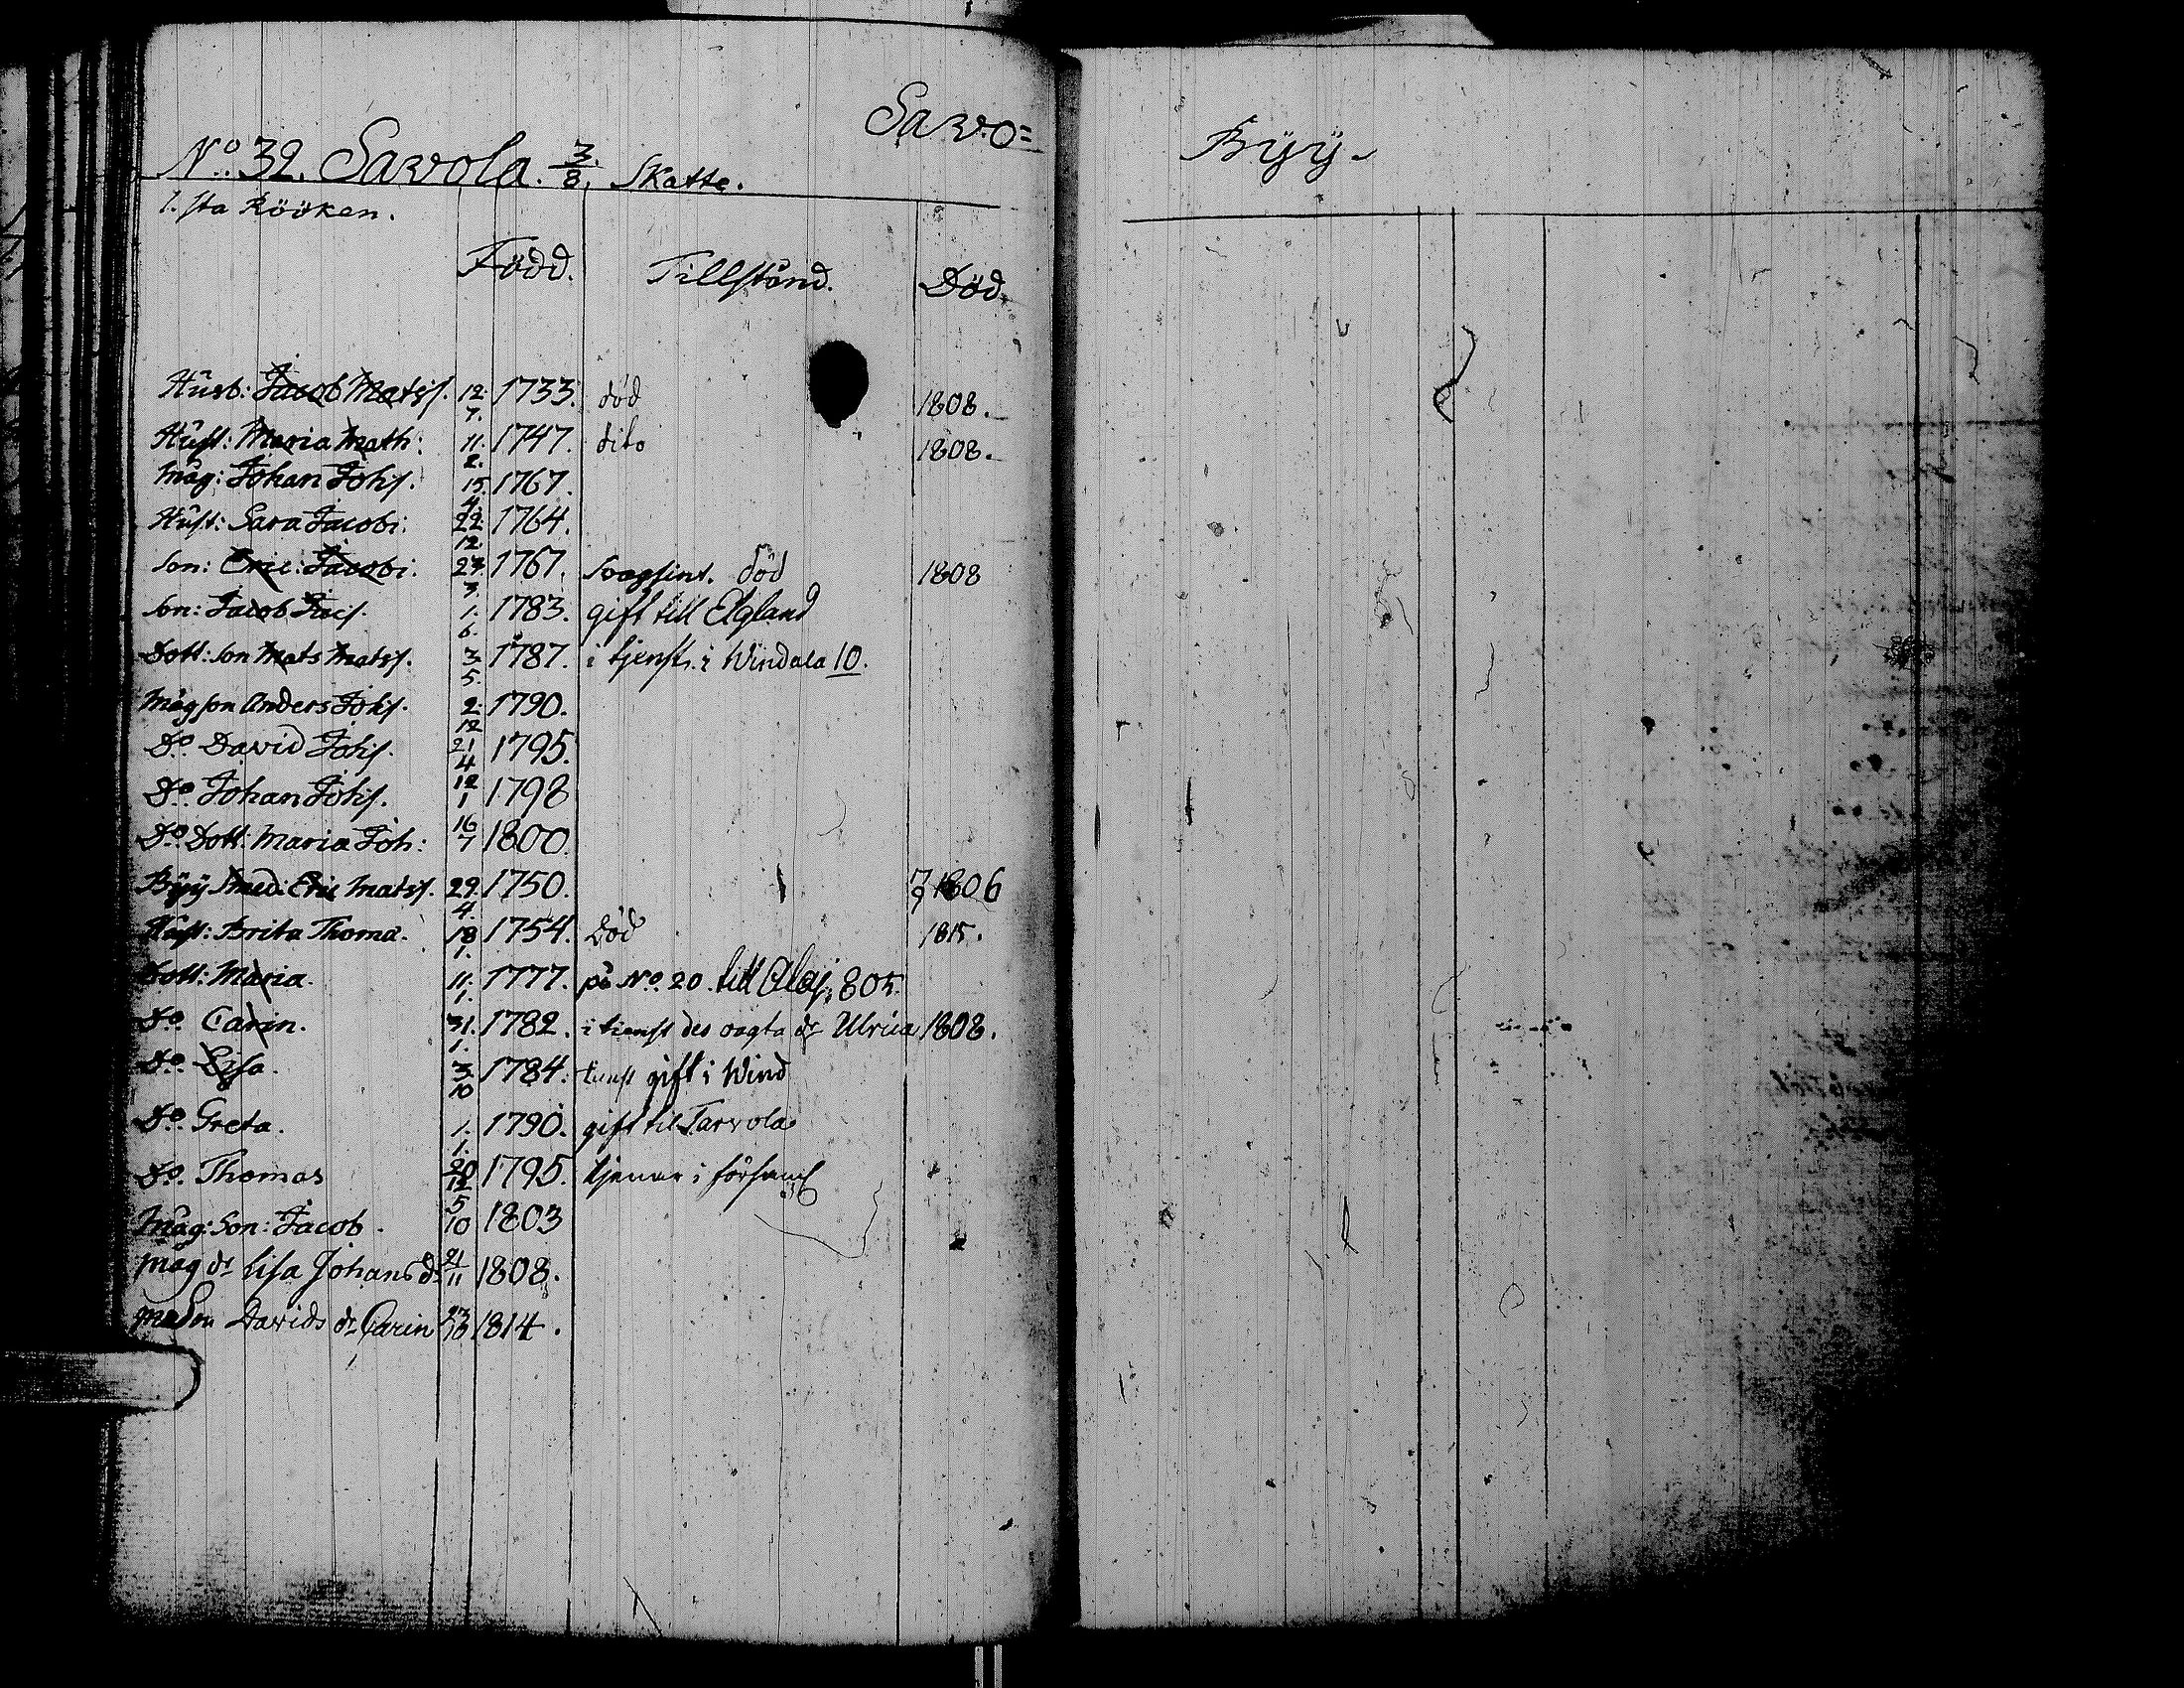 Savo=
No. 32. Savola. 3/8. Skatte.
1.sta Rööken.
Född. Tillstånd. Död.
Husb: Jacob Matss. 12. 7. 1733. död 1808.
Hust: Maria Math: 11. 2. 1747. dito 1808.
Måg: Johan Johs. 15. 4. 1767.
Hust: Sara Jacobi: 22. 12. 1764.
Son: Eric: Jacobi. 23. 3. 1767. svagsint. död 1808
Son: Jacob Jacs. 1. 6. 1783. gift till Elgland
Dott: Son Mats Matss. 3. 5. 1787. i tjenst. i Windala 10.
Mågson Anders Johs. 2. 12 1790.
Do. David Johs. 21 4 1795.
Do. Johan Johs. 12 1 1798
Do. Dott: Maria Joh: 16 7 1800.
Byy Smed: Eric Matss. 29. 4. 1750. 7 9 1806
Hust: Brita Thoma. 18 1. 1754. Död 1815.
Dott: Maria. 11. 1. 1777. på No. 20. till Alaj. 805.
Do. Carin. 31. 1. 1782. i tienst des oägta dr Ulrica 1808.
Do. Lisa. 3. 10 1784. gift i Wind
Do. Greta. 1. 1. 1790. gift til Tarvola
Do. Thomas 20 12 1795. tjenar i församl
Måg: Son: Jacob. 5 10 1803
måg dr Lisa Johans dr 21 11 1808.
Davids dr Carin 23 10 1814.
Byy.